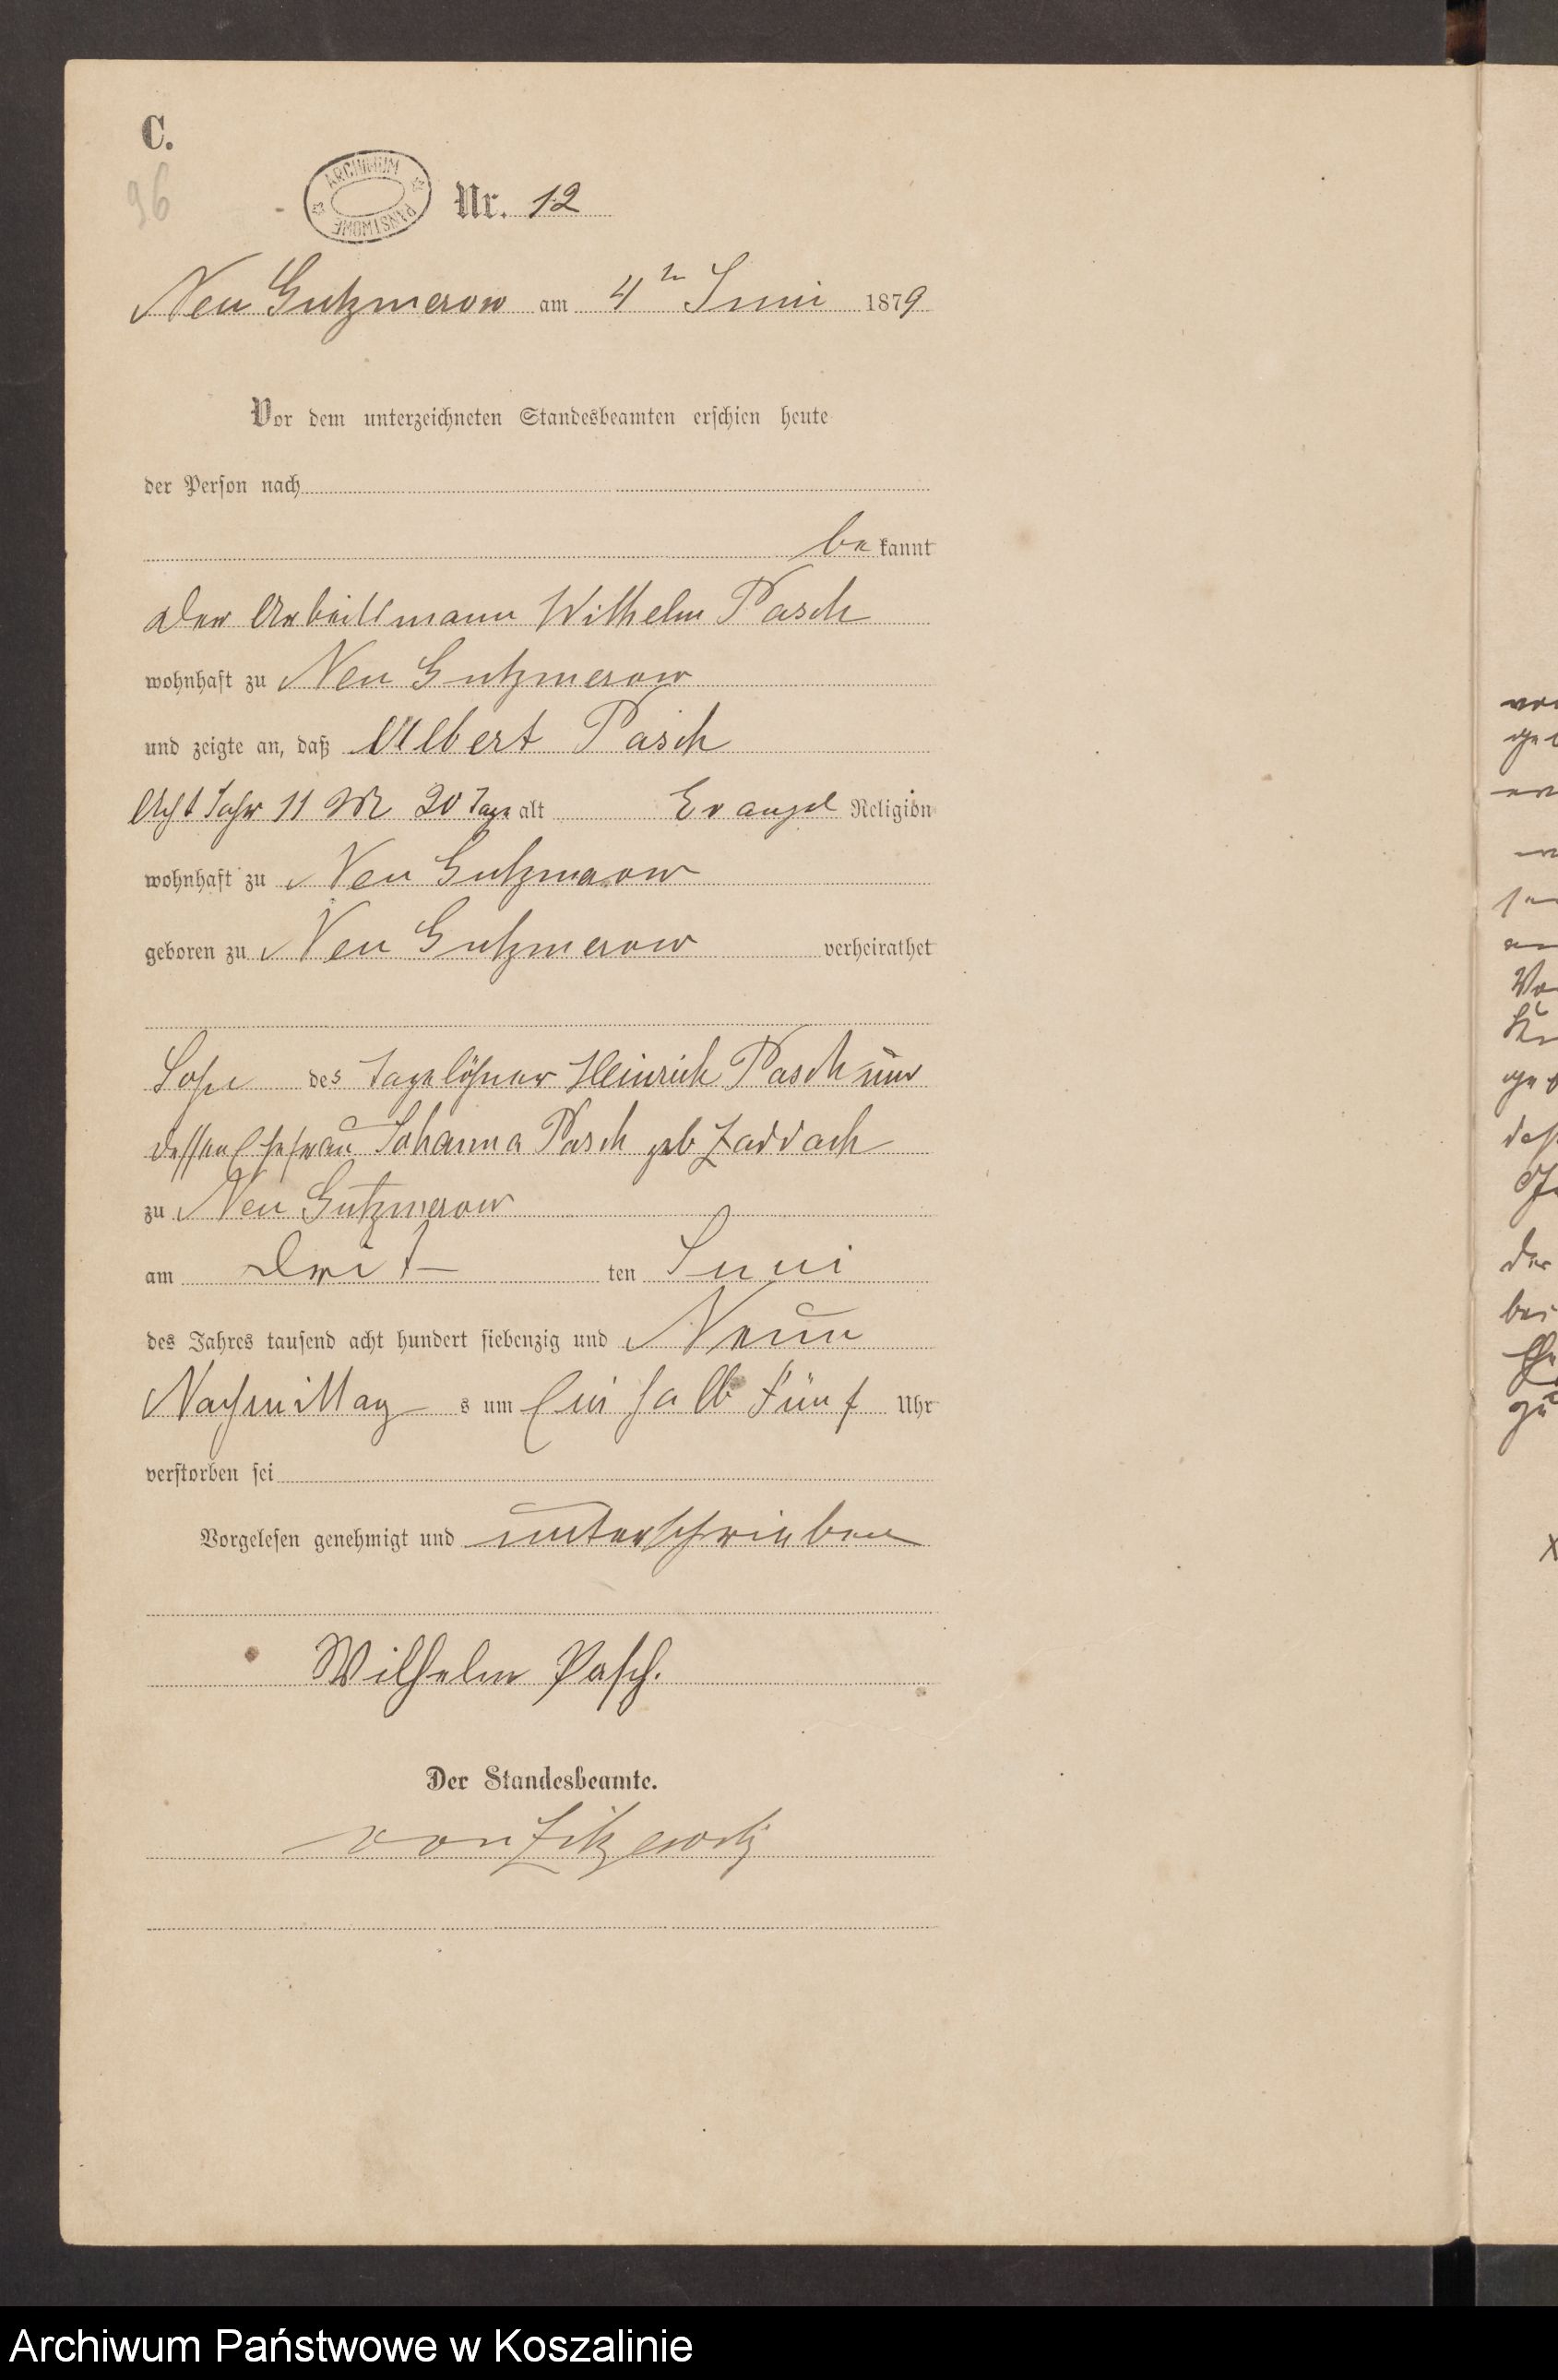 C.
96
ARCHIWUM PAŃSTWOWE
Nr. 12
Neu Gutzmerow am 4ten Juni 1879
Vor dem unterzeichneten Standesbeamten erschien heute
der Person nach
bekannt
der Arbeitsmann Wilhelm Pasch
wohnhaft zu Neu Gutzmerow
und zeigte an, daß Albert Pasch
Acht Jahr 11 M 20 Tage alt Evangel Religion
wohnhaft zu Neu Gutzmerow
geboren zu Neu Gutzmerow verheirathet
Sohn des Tagelöhner Heinrich Pasch und
dessen Ehefrau Johanna Pasch geb Zaddach
zu Neu Gutzmerow
am Drit ten Juni
des Jahres tausend acht hundert siebenzig und Neun
Nachmittag s um Ein halb Fünf Uhr
verstorben sei
Vorgelesen genehmigt und unterschrieben
Wilhelm Pasch.
Der Standesbeamte.
von Zitzewitz
Archiwum Państwowe w Koszalinie